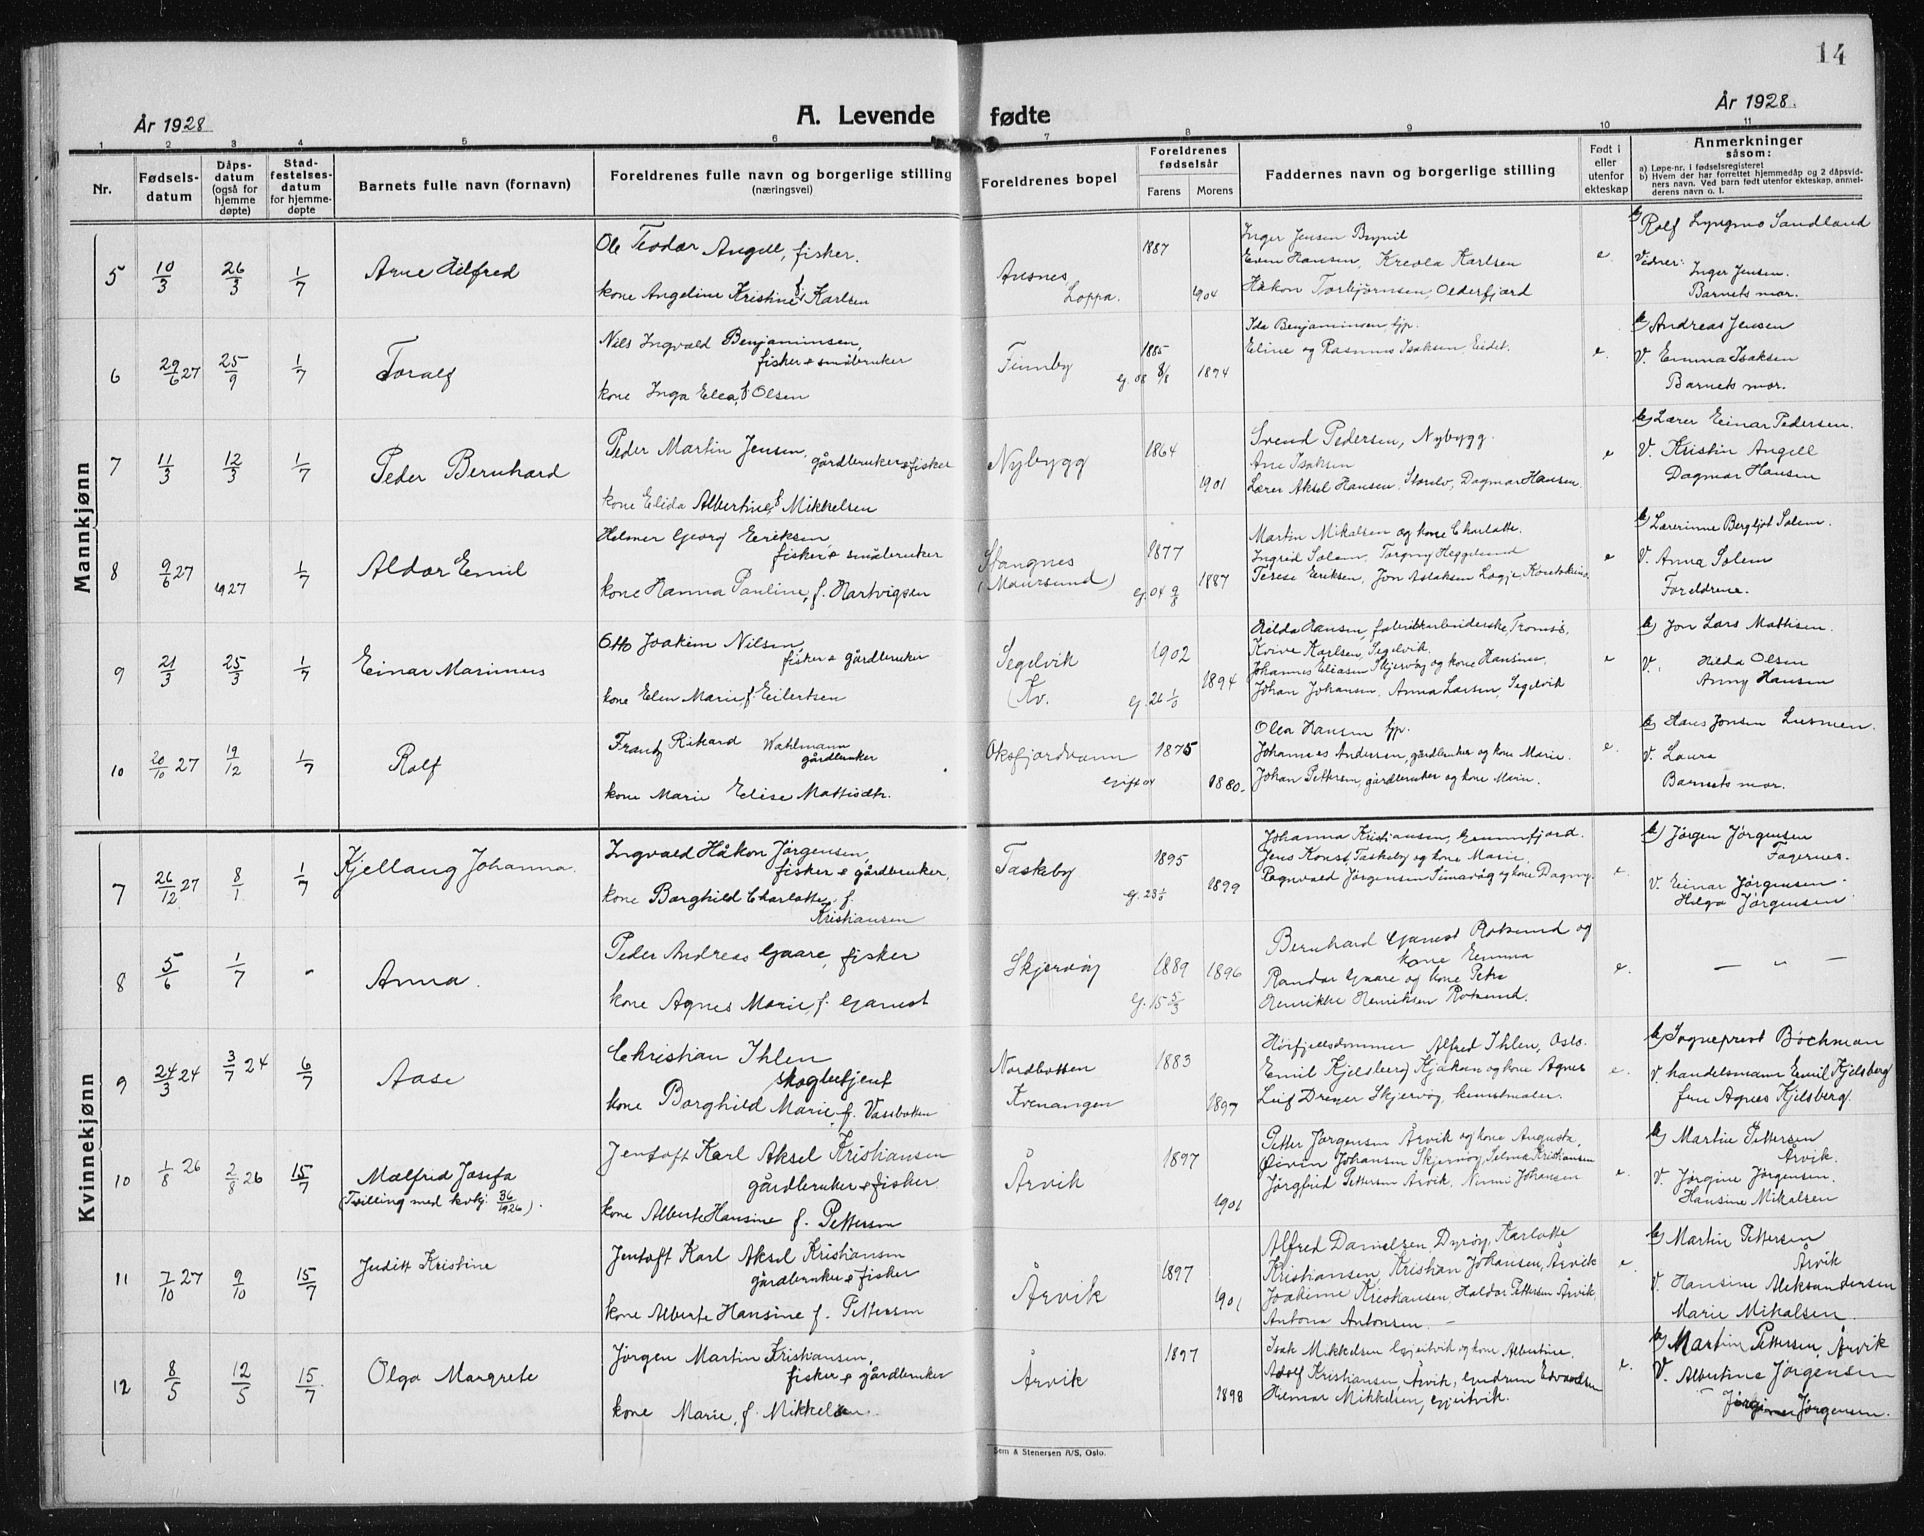 14
År 1928
A. Levende fødte
År 1928.
1 2 3 4 5 6 7 8 9 10 11
Nr.
Fødsels-
datum
Dåps-
datum
(også for
hjemme
døpte)
Stad-
festelses-
datum
for hjemme-
døpte
Barnets fulle navn (fornavn)
Foreldrenes fulle navn og borgerlige stilling
(næringsvei)
Foreldrenes bopel
Foreldrenes
fødselsår
Farens Morens
Faddernes navn og borgerlige stilling
Født i
eller
utenfor
ekteskap
Anmerkninger
såsom:
a) Løpe-nr. i fødselsregisteret
b) Hvem der har forrettet hjemmedåp og 2 dåpsvid-
ners navn. Ved barn født utenfor ekteskap, anmel-
derens navn o. l.
Mannkjønn
5 10/3 26/3 1/7 Arne Hilfred
Ole Teodor Angell, fisker.
kone Angeline Kristine f. Karlsen
Ansnes
Loppa.
1887
1904
Inger Jensen Brynil
Even Hansen, Kreola Karlsen
Håkon Torbjørnsen, Olderfjord
e.
b) Rolf Lyngmo Sandland
Vidner: Inger Jensen.
Barnets mor.
6 29/6 27 25/9 1/7 Toralf
Nils Ingvald Benjaminsen,
fisker & småbruker
kone Inga Elea, f. Olsen
Finnby
1885
g. 08 8/8 1874
Ida Benjaminsen tjp.
Eline og Rasmus Isaksen Eidet.
e.
b) Andreas Jensen
V. Emma Isaksen
Barnets mor.
7 11/3 12/3 1/7 Peder Bernhard
Peder Martin Jensen,
gårdbruker & fisker
kone Elida Albertine, f. Mikkelsen
Nybygg
1864
1901
Svend Pedersen, Nybygg.
Ane Isaksen
Lærer Aksel Hansen, Storelv, Dagmar Hansen.
e
b) Lærer Einar Pedersen.
V. Kristin Angell
Dagmar Hansen
8 9/6 27 1927 1/7 Aldor Emil
Helmer Georg Eriksen,
fisker & småbruker
kone Hanna Pauline, f. Hartvigsen
Stangnes
(Maursund)
1877
g. 04 9/8 1887
Martin Mikalsen og kone Charlotte.
Ingrid Solem, Torgny Heggelund
Terese Eriksen, Jon Aslaksen Logje, Kautokeino.
e
b) Lærerinne Bergljot Solem.
V. Anna Solem
Foreldrene.
9 21/3 25/3 1/7 Einar Marinius
Otto Joakim Nilsen,
fisker & gårdbruker
kone Elen Marie, f. Eilertsen
Segelvik
Kv.
1902
g. 26 1894
Hilda Hansen, fabrikkarbeiderske, Tromsø.
Kvive Karlsen, Segelvik.
Johannes Eliasen Skjervøy og kone Hansine.
Johan Johansen, Anna Larsen, Segelvik
e
b) Jon Lars Mathisen.
V. Hilda Olsen
Anny Hansen
10 20/10 27 19/12 1/7 Rolf
Frantz Rikard Wahlmann
gårdbruker
kone Marie Elise Mattisdtr.
Oksfjordvann
gift 01
1875
1880.
Olea Hansen tjp.
Johannes Andersen, gårdbruker og kone Marie.
Johan Pettersen, gårdbruker og kone Marie.
e.
b) Hans Jonsen
V. Laura
Barnets mor.
Kvinnekjønn
7 26/12 27 8/1 1/7 Kjellaug Johanna.
Ingvald Håkon Jørgensen,
fisker & gårdbruker,
kone Borghild Charlotte, f.
Kristiansen
Taskeby
1895
g. 23 1899
Johanna Kristiansen, Grunnfjord.
Jens Konst. Taskeby og kone Marie.
Ragnvald Jørgensen Simavåg og kone Dagny.
e.
b) Jørgen Jørgensen
Fagernes.
V. Einar Jørgensen.
Helga Jørgensen.
8 5/6 1/7 - Anna.
Peder Andreas Gaare, fisker
kone Agnes Marie, f. Ganest
Skjervøy
1889 1896
g. 15 5/3
Bernhard Ganest Rotsund og
kone Emma
Randor Gaare og kone Petra
Henrikke Henriksen Rotsund.
e.
— " —
9 24/3 24 3/7 24 6/7 Aase
Christian Ihlen
skogbetjent
kone Borghild Marie, f. Vassbotten
Nordbotten
Kvenangen
1883
1897
Alfred Ihlen, Oslo.
Emil Kjelsberg Kjækan og kone Agnes
Leif Dreyer Skjervøy, kunstmaler.
e.
b) Sogneprest Bøchman
V. handelsmann Emil Kjelsberg
frue Agnes Kjelsberg.
10 1/8 26 2/8 26 15/7 Mælfred Josefa
(Tvilling med kvkj. 36/1926).
Jentoft Karl Aksel Kristiansen
gårdbruker & fisker
kone Alberte Hansine f. Pettersen
Årvik
1897
1901
Petter Jørgensen Årvik og kone Augusta,
Øivin Johansen Skjervøy, Selma Kristiansen
Jørgfrid Pettersen Årvik, Ninni Johansen
e
b) Martin Pettersen
Årvik.
V. Jørgine Jørgensen.
Hansine Mikalsen
11 7/10 27 9/10 15/7 Juditt Kristine
Jentoft Karl Aksel Kristiansen
gårdbruker & fisker
kone Alberte Hansine f. Pettersen
Årvik
1897
1901
Alfred Danielsen, Dyrøy, Karlotte
Kristiansen, Kristian Johansen, Årvik
Joakime Kristiansen, Haldor Pettersen Årvik,
Antona Antonsen. —
e.
b) Martin Pettersen
Årvik
V. Hansine Aleksandersen
Marie Mikalsen.
12 8/5 12/5 15/7 Olga Margrete
Jørgen Martin Kristiansen,
fisker & gårdbruker
kone Marie, f. Mikkelsen.
Årvik
1897
1898
Isak Mikkelsen Gjeitvik og kone Albertine.
Adolf Kristiansen Årvik, Gudrun Edvardsen
Hilmar Mikkelsen, Gjeitvik.
e.
b) Martin Pettersen, Årvik
V. Albertine Jørgensen
Jørgine Jørgensen.
Sem & Stenersen A/S, Oslo.